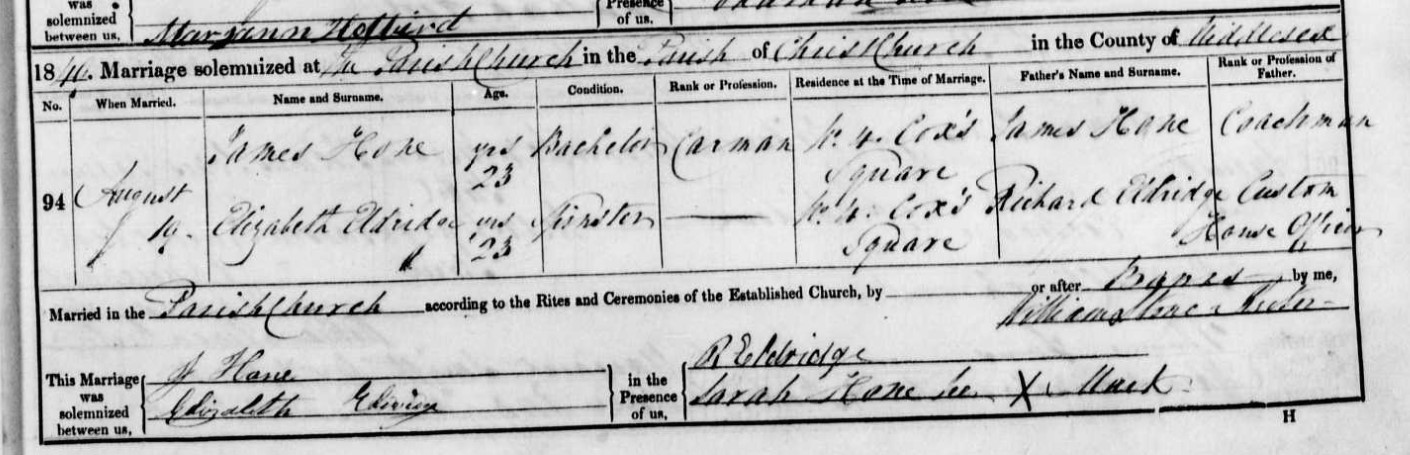 was
solemnized
between us,
Maryann Hobbird
Presence
of us,
18 . Marriage solemnized at the Parish Church in the Parish of Christ Church in the County of Middlesex
No. When Married. Name and Surname. Age. Condition. Rank or Profession. Residence at the Time of Marriage. Father's Name and Surname. Rank or Profession of Father.
James Hone yrs 23 Bachelor Carman No. 4. Cox's Square James Hone Coachman
94 August 19. Elizabeth Eldridge yrs 23 Spinster — No. 4. Cox's Square Richard Eldridge Custom House Officer
Married in the Parish Church according to the Rites and Ceremonies of the Established Church, by or after Banns by me,
William Stone
This Marriage
was
solemnized
between us,
J Hone
Elizabeth
in the
Presence
of us,
R Eldridge
Sarah Hone her X Mark
H